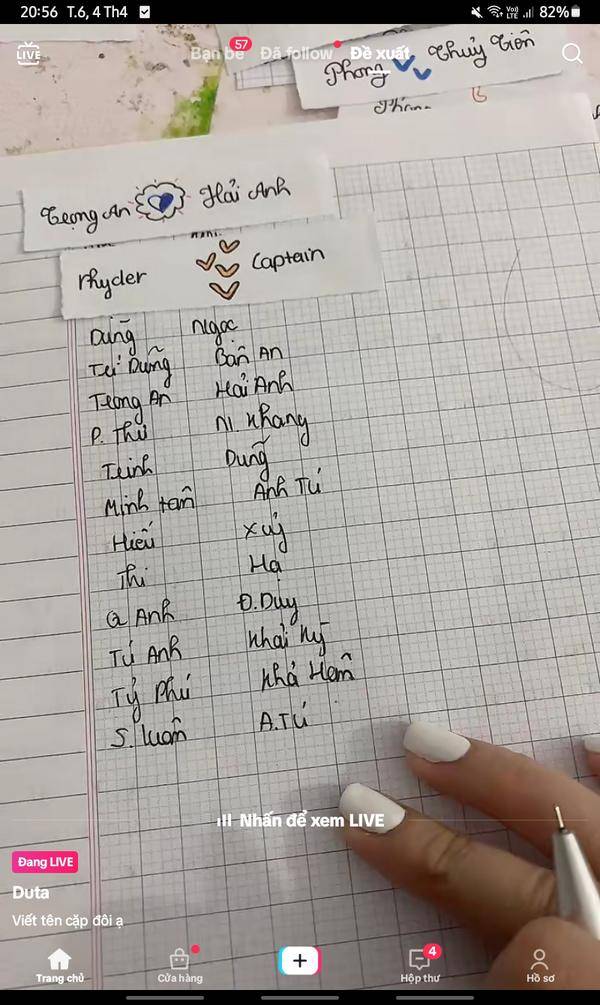 20:56 T.6, 4 Th4
Vo) LTE 82%
LIVE Bạn bè 57 Đã follow Đề xuất
Phong Thuỷ Tiên
Trọng An Hải Anh
rhyder Captain
Dũng Ngọc
Tú Dũng Bận An
Trọng An Hải Anh
P. Thư N. Khang
Trinh Dung
Minh tâm Anh Tú
Hiếu Xuý
Thi Hạ
Q Anh Đ.Duy
Tú Anh Khải Hỷ
Tỷ Phú Khả Hem
S. Luân A.Tú
Nhấn để xem LIVE
Đang LIVE
Duta
Viết tên cặp đôi ạ
Trang chủ Cửa hàng Hộp thư 4 Hồ sơ